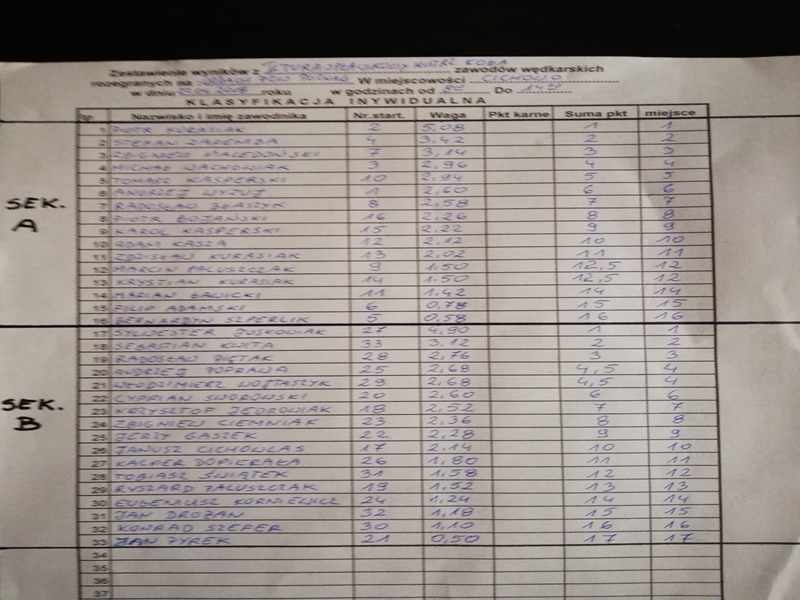 Zestawienie wyników z II TURA SPŁAWIKOWY MISTRZ KOŁA zawodów wędkarskich
rozegranych na W miejscowości CICHOWO
w dniu 2018 roku w godzinach od Do 14
KLASYFIKACJA INYWIDUALNA
lp Nazwisko i imię zawodnika Nr.start. Waga Pkt karne Suma pkt miejsce
SEK. A
1 PIOTR KURASIAK 2 5,08 1 1
2 STEFAN ZAREMBA 4 3,42 2 2
3 ZBIGNIEW MACEDOŃSKI 7 3,14 3 3
4 MICHAŁ WACHOWIAK 3 2,96 4 4
5 TOMASZ KASPERSKI 10 2,94 5 5
6 ANDRZEJ WYZUJ 1 2,60 6 6
7 RADOSŁAW BŁASZYK 8 2,58 7 7
8 PIOTR BOJAŃSKI 16 2,26 8 8
9 KAROL KASPERSKI 15 2,22 9 9
10 ADAM KASZA 12 2,12 10 10
11 ZDZISŁAW KURASIAK 13 2,02 11 11
12 MARCIN PALUSZCZAK 9 1,50 12,5 12
13 KRYSTIAN KURASIAK 14 1,50 12,5 12
14 MARIAN 11 1,42 14 14
15 FILIP ADAMSKI 6 0,78 15 15
16 BERNARDYN SZPERLIK 5 0,58 16 16
SEK. B
17 SYLWESTER BUSKOWIAK 27 4,90 1 1
18 SEBASTIAN KWITA 33 3,12 2 2
19 RADOSŁAW PIĘTAK 28 2,76 3 3
20 ANDRZEJ POPRAWA 25 2,68 4,5 4
21 WŁODZIMIERZ WOJTASZYK 29 2,68 4,5 4
22 CYPRIAN SWOROWSKI 20 2,60 6 6
23 KRZYSZTOF JĘDROWIAK 18 2,52 7 7
24 ZBIGNIEW CIEMNIAK 23 2,36 8 8
25 JERZY GASZEK 22 2,28 9 9
26 JANUSZ CICHOWLAS 17 2,14 10 10
27 KACPER DOPIERAŁA 26 1,80 11 11
28 TOBIASZ ŚWIĄTEK 31 1,58 12 12
29 RYSZARD PALUSZCZAK 19 1,52 13 13
30 EUGENIUSZ KORNIEWICZ 24 1,24 14 14
31 JAN DROŻAN 32 1,18 15 15
32 KONRAD SZEFER 30 1,10 16 16
33 JAN ŻYREK 21 0,50 17 17
34
35
36
37